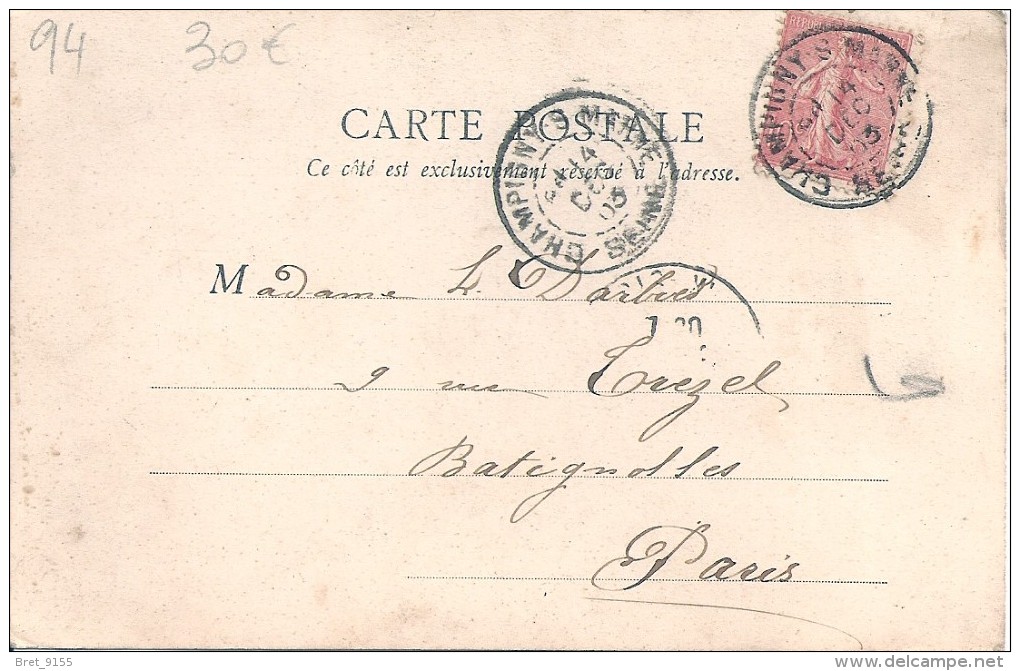 94 30€
CARTE POSTALE
Ce côté est exclusivement réservé à l'adresse.
CHAMPIGNY S MARNE
14
DEC
03
SEINE
CHAMPIGNY S MARNE
14
DEC
03
SEINE
Madame L. Darbies
9 rue Trezel
Batignolles
Paris
Bret_9155
www.delcampe.net